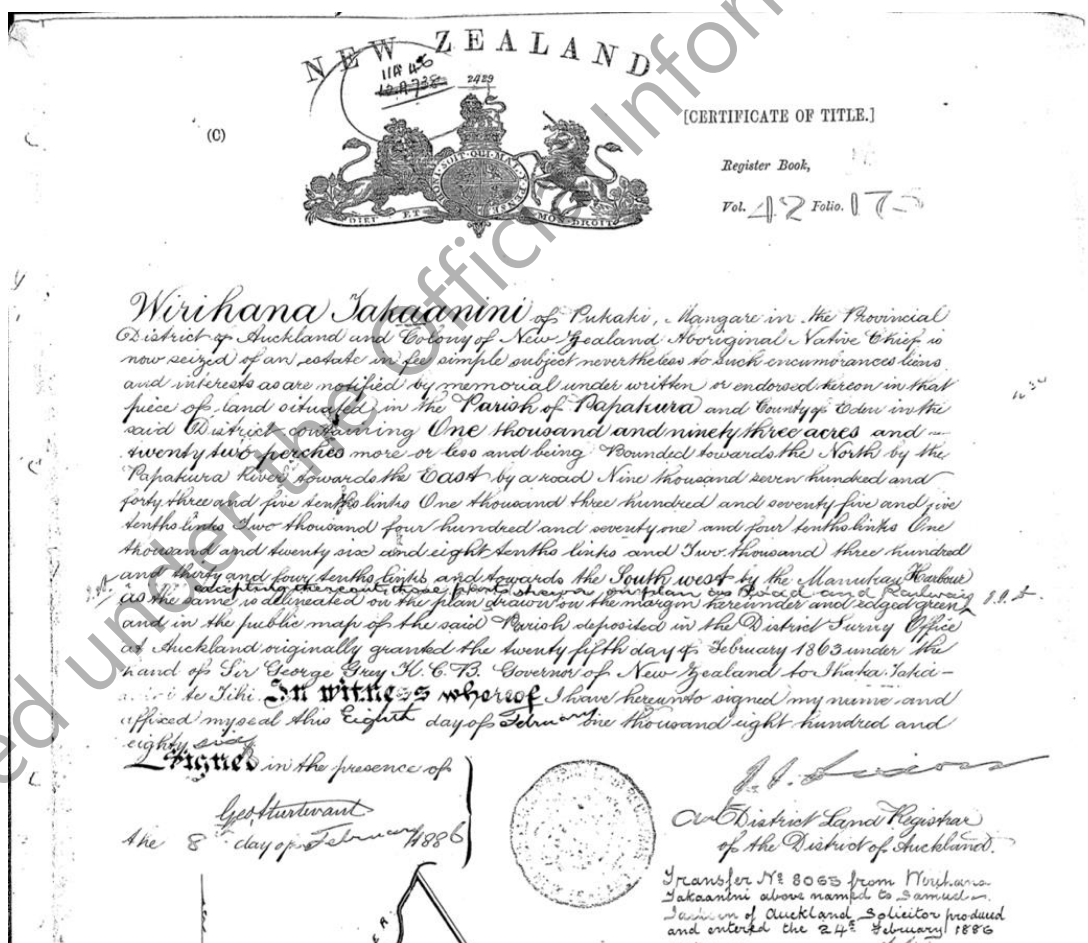 NEW ZEALAND
11A 46
12A 738
2429
(C)
[CERTIFICATE OF TITLE.]
Register Book,
Vol. 42 Folio. 175
HONI·SOIT·QUI·MAL·Y·PENSE
DIEU ET MON DROIT
Wirihana Takaanini of Pukaki, Mangare in the Provincial
District of Auckland and Colony of New Zealand Aboriginal Native Chief is
now seized of an estate in fee simple subject nevertheless to such encumbrances liens
and interests as are notified by memorial under written or endorsed hereon in that
piece of land situated in the Parish of Papakura and County of Eden in the
said District containing One thousand and ninety three acres and
twenty two perches more or less and being Bounded towards the North by the
Papakura River towards the East by a road Nine thousand seven hundred and
forty three and five tenths links One thousand three hundred and seventy five and five
tenths links Two thousand four hundred and seventy one and four tenths links One
thousand and twenty six and eight tenths links and Two thousand three hundred
and thirty and four tenths links and towards the South west by the Manukau Harbour
excepting thereout those parts shewn on plan as Road and Railway
as the same is delineated on the plan drawn on the margin hereunder and edged green
and in the public map of the said Parish deposited in the District Survey Office
at Auckland originally granted the twenty fifth day of February 1863 under the
hand of Sir George Grey K.C.B. Governor of New Zealand to Ihaka Taka-
te Tihi. In witness whereof I have hereunto signed my name and
affixed my seal this Eighth day of February one thousand eight hundred and
eighty six
Signed in the presence of
Geo Sturtevant
the 8th day of February 1886
District Land Registrar
of the District of Auckland.
Transfer No 8065 from Wirihana
Takaanini above named to Samuel
Jackson of Auckland Solicitor produced
and entered the 24th February 1886
under the Official Infor